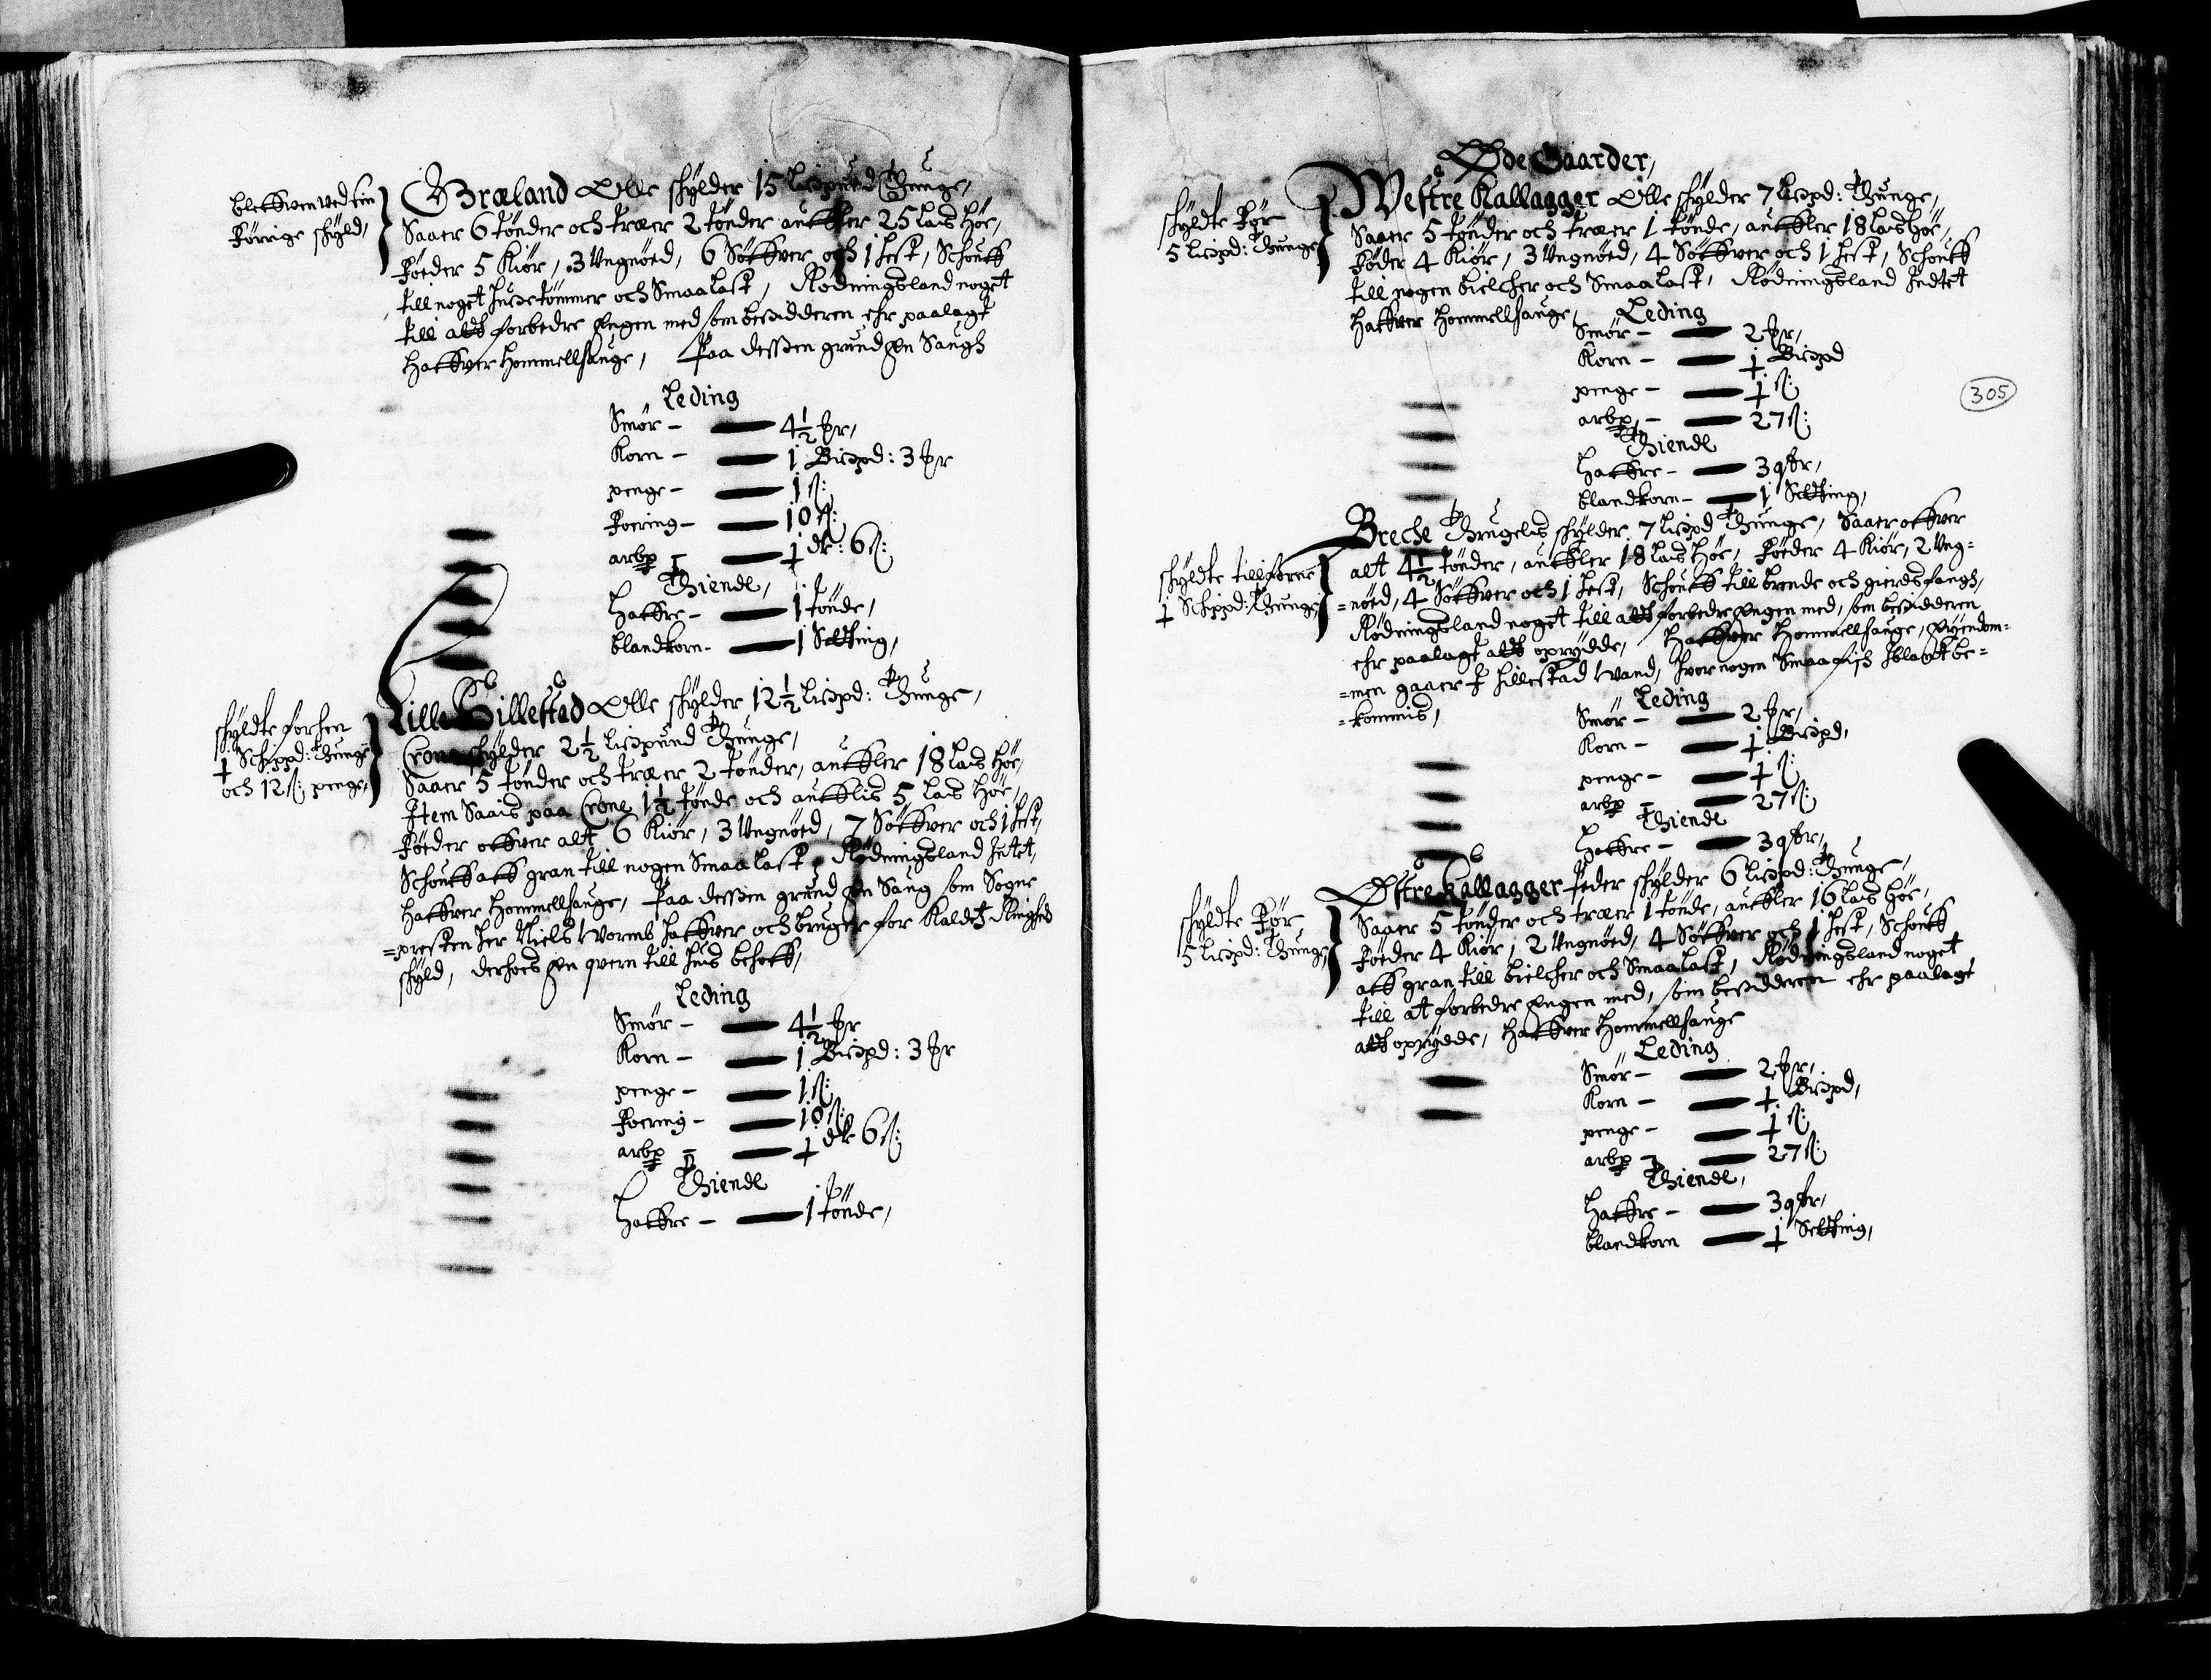 bleffven ved sin
Förrige skÿld,
Græland Olle skÿlder 15 Lispund Tunge,
Saaer 6 tönder och træer 2 tönder auffler 25 Lass Höe,
Föeder 5 Kiör, 3 Ungnöed, 6 Söffver och 1 Hest, Schouff
till noget Husetömmer och Smaalast, Rödningsland noget
till att forbedre Engen med som besidderen ehr paalagt
Haffver Hommellhauge, Paa dessen grund En Saugh
Leding
Smör - 4½ Mr,
Korn - 1 Bispd: 3 Mr
penge - 1 ß:
Foering - 10 ß:
arbp - ½ dlr: 6 ß:
Thiende,
Haffre - 1 tönde,
blandkorn - 1 Setting,
skÿldte forhen
½ Schippd: Tunge
och 12 ß: penge,
Lille Hillestad Olle skÿlder 12½ Lispd: Tunge,
Crone skÿlder 2½ Lispund Tunge,
Saaer 5 tönder och træer 2 tönder, auffler 18 Lass Höe,
Item Saais paa Crone 1½ tönde och aufflis 5 Lass Höe,
Föeder offver alt 6 Kiör, 3 Ungnöed, 7 Söffver och 1 Hest,
Schouff aff gran till nogen Smaalast, Rödningsland Intet,
Haffver Hommellhauge, Paa dessen grund En Saug som Sogne
=presten Her Niels Worms haffver och bruger for Kaldet Ringhed
skÿld, derhoes En qvern till Huus behoff,
Leding
Smör - 4½ Mr
Korn - 1 Bispd: 3 Mr
penge - 1 ß:
Foering - 10 ß:
arbp - ½ dlr 6 ß:
Thiende
Haffre - 1 tönde,
Øde Gaarder,
skÿldte För
5 Lispd: Tunge
Westre Kallagger Olle skÿlder 7 Lispd: Tunge,
Saaer 5 tönder och træer 1 tönde, auffler 18 Lass Höe,
Föder 4 Kiör, 3 Ungnöed, 4 Söffver och 1 Hest, Schouff
till nogen bielcher och Smaalast, Rödningsland Indtet
Haffver Hommellhauge,
Leding
Smör - 2 Mr,
Korn - ½ Bispd
penge - ½ ß:
arbp - 27 ß:
305
Thiende
Haffre - 3 qtr,
blandkorn - 1 Setting,
skÿldte tillforne
½ Schippd: Tunge
Breche Engelis skÿlder 7 Lispd Tunge, Saaer offver
alt 4½ tönder, auffler 18 Lass Höe, Föeder 4 Kiör, 2 Ung=
=nöed, 4 Söffver och 1 Hest, Schouff till brende och gierdsfangh,
Rödningsland noget till att forbedre Engen med, som besidderen
ehr paalagt att oprÿdde, Haffver Hommellhauge, Eÿendom=
=men gaaer I Hillestad Wand, hvor nogen Smaafish Iblandt be=
=kommis,
Leding
Smör - 2 Mr,
Korn - ½ Bispd,
penge - ½ ß:
arbp - 27 ß:
Thiende
Haffre - 3 qtr,
skÿldte För
5 Lispd: Tunge
Østre Kallagger Peder skÿlder 6 Lispd: Tunge,
Saaer 5 tönder och træer 1 tönde, auffler 16 Lass Höe,
Föeder 4 Kiör, 2 Ungnöed, 4 Söffver och 1 Hest, Schouff
aff gran till bielcher och Smaalast, Rödningsland noget
till at forbedre Engen med, som besidderen ehr paalagt
att oprÿdde, Haffver Hommellhauge
Leding
Smör - 2 Mr,
Korn - ½ Bispd,
penge - ½ ß:
arbp - 27 ß:
Thiende,
Haffre - 3 qtr,
blandkorn ½ Setting,